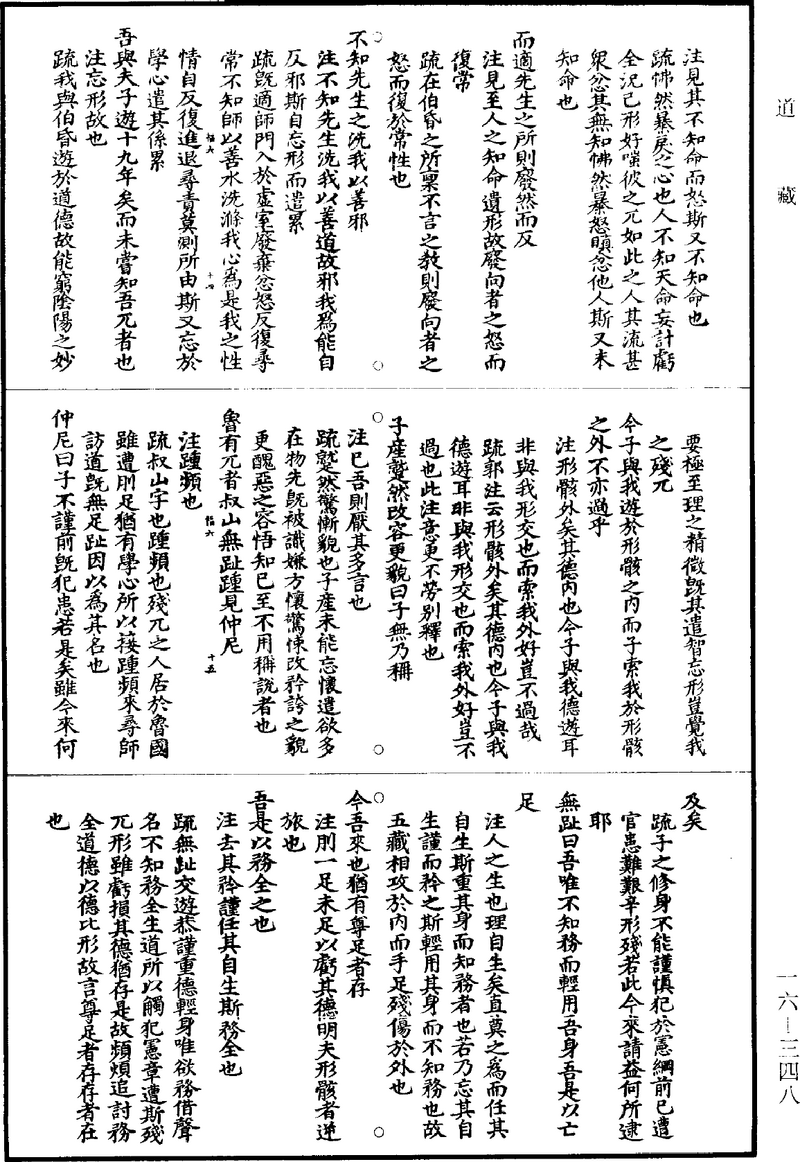 道藏
注見其不知命而怒斯又不知命也
疏怫然暴戾之心也人不知天命妄計虧
全況已形好嗤彼之兀如此之人其流甚
衆忿其無知怫然暴怒嗔忿他人斯又未
知命也
而適先生之所則廢然而反
注見至人之知命遺形故廢向者之怒而
復常
疏在伯昏之所稟不言之教則廢向者之
怒而復於常性也
不知先生之洗我以善邪
注不知先生洗我以善道故邪我爲能自
反邪斯自忘形而遣累
疏既適師門入於虛室廢棄忿怒反復尋
常不知師以善水洗滌我心爲是我之性
情自反復進退尋責莫測所由斯又忘於
學心遣其係累
吾與夫子遊十九年矣而未嘗知吾兀者也
注忘形故也
疏我與伯昏遊於道德故能窮陰陽之妙
福六
十四
要極至理之精微既其遣智忘形豈覺我
之殘兀
今子與我遊於形骸之內而子索我於形骸
之外不亦過乎
注形骸外矣其德內也今子與我德遊耳
非與我形交也而索我外好豈不過哉
疏郭注云形骸外矣其德內也今子與我
德遊耳非與我形交也而索我外好豈不
過也此注意更不勞別釋也
子産蹵然改容更貌曰子無乃稱
注已吾則厭其多言也
疏蹵然驚慚貌也子産未能忘懷遣欲多
在物先既被譏嫌方懷驚悚改矜誇之貌
更醜惡之容悟知已至不用稱說者也
魯有兀者叔山無趾踵見仲尼
注踵頻也
福六
十五
疏叔山字也踵頻也殘兀之人居於魯國
雖遭刖足猶有學心所以接踵頻來尋師
訪道既無足趾因以爲其名也
仲尼曰子不謹前既犯患若是矣雖今來何
及矣
疏子之修身不能謹慎犯於憲綱前已遭
官患難艱辛形殘若此今來請益何所逮
耶
無趾曰吾唯不知務而輕用吾身吾是以亡
足
注人之生也理自生矣直莫之爲而任其
自生斯重其身而知務者也若乃忘其自
生謹而矜之斯輕用其身而不知務也故
五藏相攻於內而手足殘傷於外也
今吾來也猶有尊足者存
注刖一足未足以虧其德明夫形骸者逆
旅也
吾是以務全之也
注去其矜謹任其自生斯務全也
疏無趾交遊恭謹重德輕身唯欲務借聲
名不知務全生道所以觸犯憲章遭斯殘
兀形雖虧損其德猶存是故頻頻追討務
全道德以德比形故言尊足者存存者在
也
一六—三四八